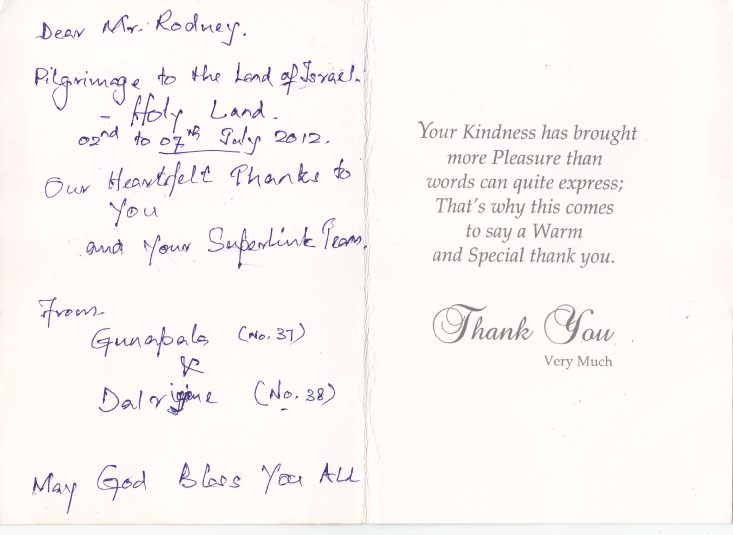 Dear Mr. Rodney.
Pilgrimage to the Land of Israel.
- Holy Land.
02nd to 07th July 2012.
Our Heartfelt Thanks to
You
and Your Superlink Team.
From
Gunapala (No. 37)
&
(No. 38)
May God Bless You ALL
Your Kindness has brought
more Pleasure than
words can quite express;
That's why this comes
to say a Warm
and Special thank you.
Thank You
Very Much